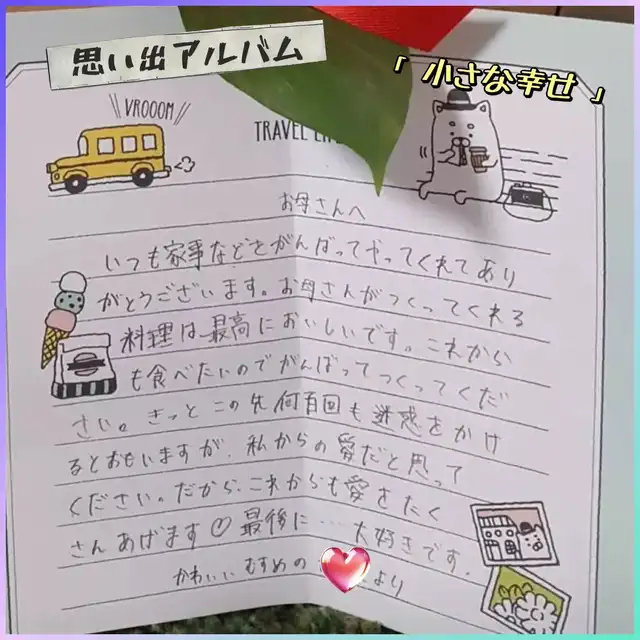 思い出アルバム
「小さな幸せ」
VROOOM
TRAVEL
お母さんへ
いつも家事などをがんばってやってくれてあり
がとうございます。お母さんがつくってくれる
料理は最高においしいです。これから
も食べたいのでがんばってつくってくだ
さい。きっとこの先何百回も迷惑をかけ
るとおもいますが、私からの愛だと思って
ください。だから、これからも愛をたく
さんあげます♡最後に…大好きです。
かわいいむすめの
より